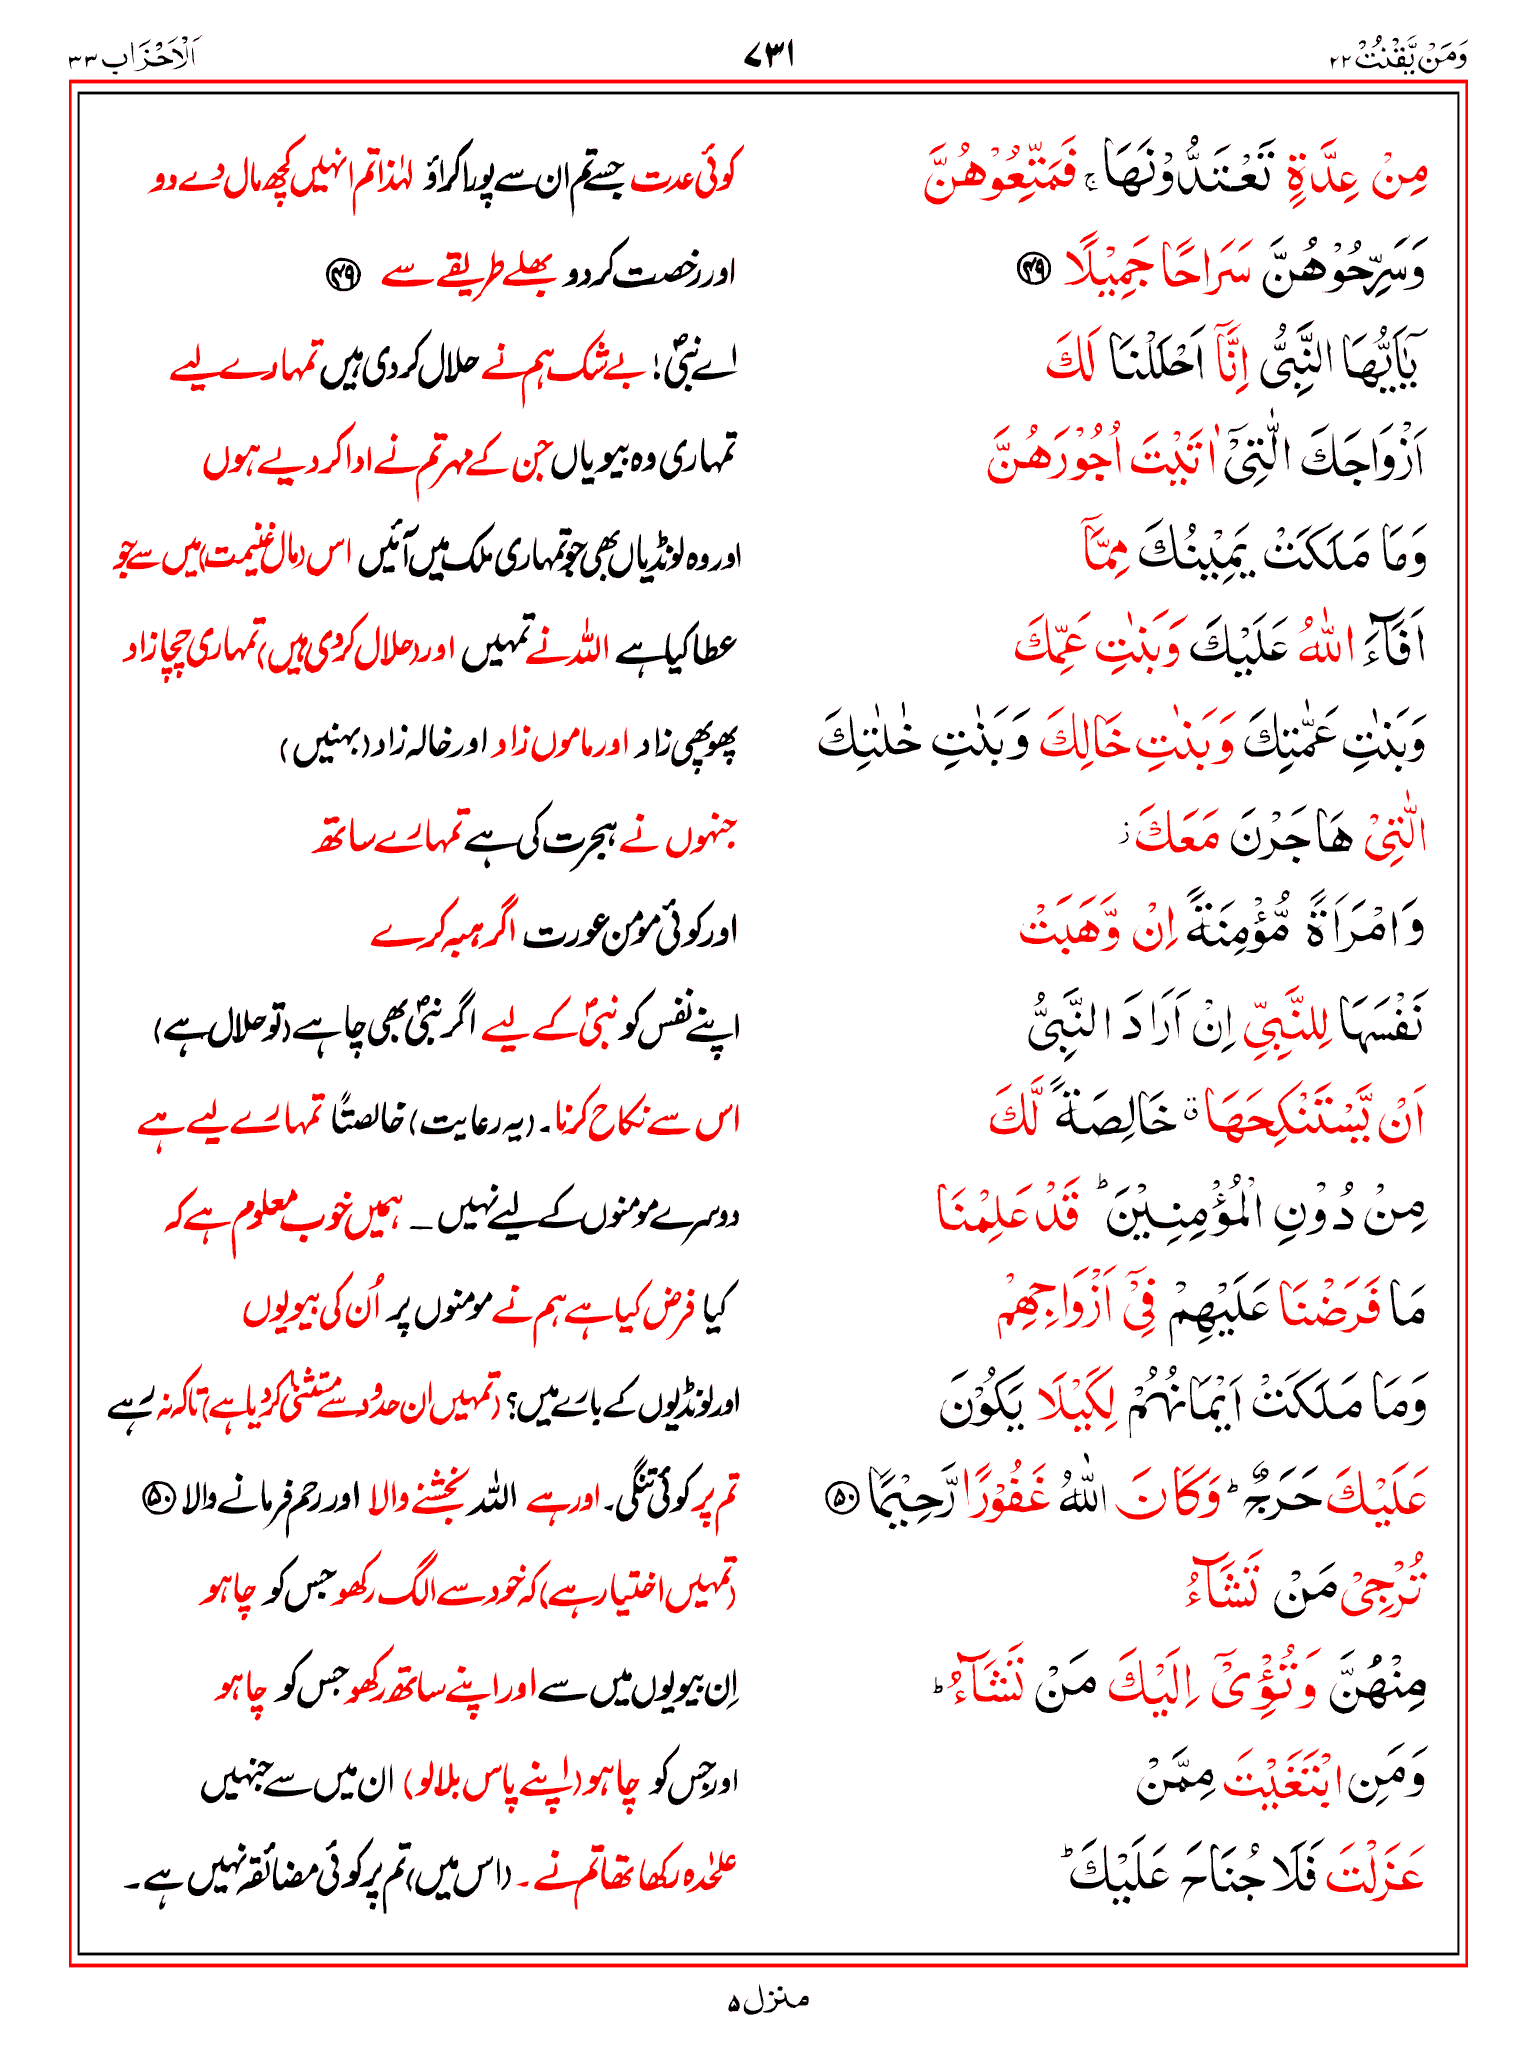 وَمَنْ يَّقْنُتْ ۲۲ ۷۳۱ اَلْاَحْزَاب ۳۳
مِنْ عِدَّةٍ تَعْتَدُّوْنَهَا ۚ فَمَتِّعُوْهُنَّ کوئی عدت جسے تم ان سے پورا کراؤ لہٰذا تم انہیں کچھ مال دے دو
وَسَرِّحُوْهُنَّ سَرَاحًا جَمِيْلًا ﴿۴۹﴾ اور رخصت کردو بھلے طریقے سے ﴿۴۹﴾
يٰٓاَيُّهَا النَّبِىُّ اِنَّآ اَحْلَلْنَا لَكَ اے نبیؐ! بے شک ہم نے حلال کردی ہیں تمہارے لیے
اَزْوَاجَكَ الّٰتِىْٓ اٰتَيْتَ اُجُوْرَهُنَّ تمہاری وہ بیویاں جن کے مہر تم نے ادا کر دیے ہوں
وَمَا مَلَكَتْ يَمِيْنُكَ مِمَّآ اور وہ لونڈیاں بھی جو تمہاری ملک میں آئیں اس (مال غنیمت) میں سے جو
اَفَآءَ اللّٰهُ عَلَيْكَ وَبَنٰتِ عَمِّكَ عطا کیا ہے اللہ نے تمہیں اور (حلال کردی ہیں) تمہاری چچا زاد
وَبَنٰتِ عَمّٰتِكَ وَبَنٰتِ خَالِكَ وَبَنٰتِ خٰلٰتِكَ پھوپھی زاد اور ماموں زاد اور خالہ زاد (بہنیں)
الّٰتِىْ هَاجَرْنَ مَعَكَ ۫ جنہوں نے ہجرت کی ہے تمہارے ساتھ
وَامْرَاَةً مُّؤْمِنَةً اِنْ وَّهَبَتْ اور کوئی مومن عورت اگر ہبہ کرے
نَفْسَهَا لِلنَّبِىِّ اِنْ اَرَادَ النَّبِىُّ اپنے نفس کو نبیؐ کے لیے اگر نبیؐ بھی چاہے (تو حلال ہے)
اَنْ يَّسْتَنْكِحَهَا ۗ خَالِصَةً لَّكَ اس سے نکاح کرنا۔ (یہ رعایت) خالصتاً تمہارے لیے ہے
مِنْ دُوْنِ الْمُؤْمِنِيْنَ ؕ قَدْ عَلِمْنَا دوسرے مومنوں کے لیے نہیں ـ ہمیں خوب معلوم ہے کہ
مَا فَرَضْنَا عَلَيْهِمْ فِىْٓ اَزْوَاجِهِمْ کیا فرض کیا ہے ہم نے مومنوں پر اُن کی بیویوں
وَمَا مَلَكَتْ اَيْمَانُهُمْ لِكَيْلَا يَكُوْنَ اور لونڈیوں کے بارے میں؟ (تمہیں ان حدود سے مستثنیٰ کر دیا ہے) تاکہ نہ رہے
عَلَيْكَ حَرَجٌ ؕ وَكَانَ اللّٰهُ غَفُوْرًا رَّحِيْمًا ﴿۵۰﴾ تم پر کوئی تنگی۔ اور ہے اللہ بخشنے والا اور رحم فرمانے والا ﴿۵۰﴾
تُرْجِىْ مَنْ تَشَآءُ (تمہیں اختیار ہے) کہ خود سے الگ رکھو جس کو چاہو
مِنْهُنَّ وَتُؤْىِٓ اِلَيْكَ مَنْ تَشَآءُ ؕ اِن بیویوں میں سے اور اپنے ساتھ رکھو جس کو چاہو
وَمَنِ ابْتَغَيْتَ مِمَّنْ اور جس کو چاہو (اپنے پاس بلالو) ان میں سے جنہیں
عَزَلْتَ فَلَا جُنَاحَ عَلَيْكَ ؕ علحٰدہ رکھا تھا تم نے ۔ (اس میں) تم پر کوئی مضائقہ نہیں ہے۔
منزل ۵